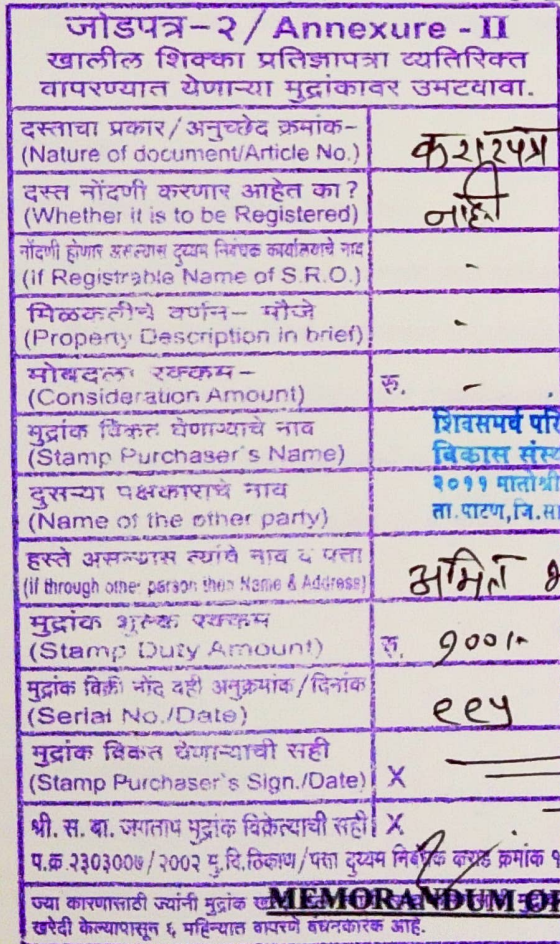 जोडपत्र-२/Annexure - II
खालील शिक्का प्रतिज्ञापत्रा व्यतिरिक्त
वापरण्यात येणाऱ्या मुद्रांकावर उमटवावा.
दस्ताचा प्रकार/अनुच्छेद क्रमांक-
(Nature of document/Article No.)
करारपत्र
दस्त नोंदणी करणार आहेत का?
(Whether it is to be Registered)
नाही
नोंदणी होणार असल्यास दुय्यम निबंधक कार्यालयाचे नाव
(if Registrable Name of S.R.O.)
-
मिळकतीचे वर्णन- मौजे
(Property Description in brief)
-
मोबदला रक्कम-
(Consideration Amount)
रु. -
मुद्रांक विकत घेणाऱ्याचे नाव
(Stamp Purchaser's Name)
शिवसमर्थ परि
विकास संस्थ
दुसऱ्या पक्षकाराचे नाव
(Name of the other party)
२०११ मातोश्री
ता.पाटण,जि.सा
हस्ते असल्यास त्यांचे नाव व पत्ता
(if through other person then Name & Address)
अमित
मुद्रांक शुल्क रक्कम
(Stamp Duty Amount)
रु. १००/-
मुद्रांक विक्री नोंद वही अनुक्रमांक/दिनांक
(Serial No./Date)
मुद्रांक विकत घेणाऱ्याची सही
(Stamp Purchaser's Sign./Date) X
श्री. स. बा. जगताप मुद्रांक विक्रेत्याची सही X
प.क्र.2303007/2002 मु.वि.ठिकाण/पत्ता दुय्यम निबंधक कराड क्रमांक १
ज्या कारणासाठी ज्यांनी मुद्रांक
MEMORANDUM OF
खरेदी केल्यापासून ६ महिन्यात वापरणे बंधनकारक आहे.